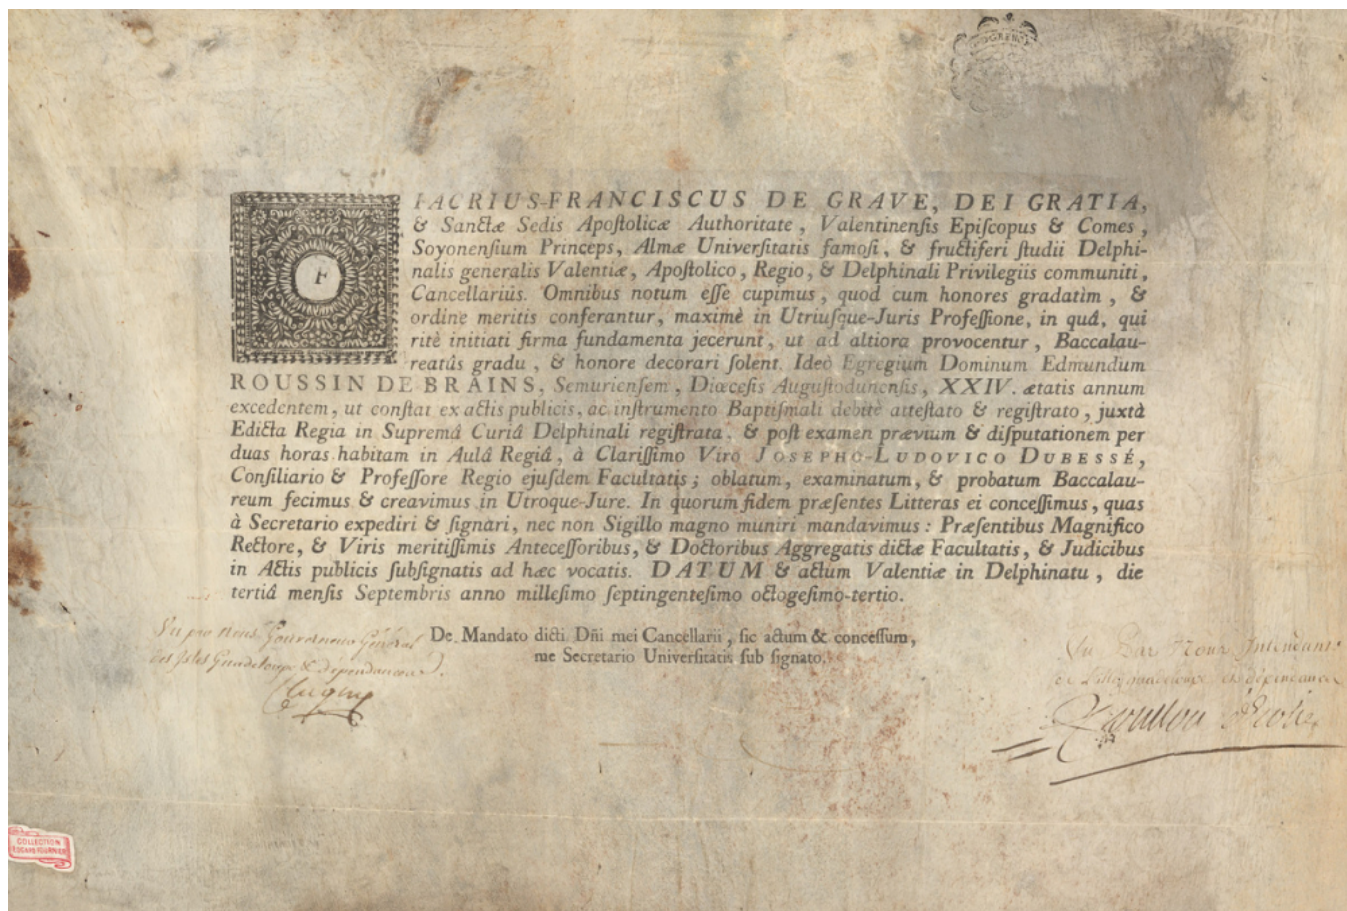 FIACRIUS-FRANCISCUS DE GRAVE, DEI GRATIA,
& Sanctæ Sedis Apoſtolicæ Authoritate, Valentinenſis Epiſcopus & Comes,
Soyonenſium Princeps, Almæ Univerſitatis famoſi, & fructiferi ſtudii Delphi-
nalis generalis Valentiæ, Apoſtolico, Regio, & Delphinali Privilegiis communiti,
Cancellarius. Omnibus notum eſſe cupimus, quod cum honores gradatìm, &
ordine meritis conferantur, maximè in Utriuſque-Juris Profeſſione, in quâ, qui
ritè initiati firma fundamenta jecerunt, ut ad altiora provocentur, Baccalau-
reatûs gradu, & honore decorari ſolent. Ideò Egregium Dominum Edmundum
ROUSSIN DE BRAINS, Semurienſem, Diœceſis Auguſtodunenſis, XXIV. ætatis annum
excedentem, ut conſtat ex actis publicis, ac inſtrumento Baptiſmali debitè atteſtato & regiſtrato, juxtà
Edicta Regia in Supremâ Curiâ Delphinali regiſtrata, & poſt examen prævium & diſputationem per
duas horas habitam in Aulâ Regiâ, à Clariſſimo Viro JOSEPHO-LUDOVICO DUBESSÉ,
Conſiliario & Profeſſore Regio ejuſdem Facultatis; oblatum, examinatum, & probatum Baccalau-
reum fecimus & creavimus in Utroque-Jure. In quorum fidem præſentes Litteras ei conceſſimus, quas
à Secretario expediri & ſignari, nec non Sigillo magno muniri mandavimus: Præſentibus Magnifico
Rectore, & Viris meritiſſimis Anteceſſoribus, & Doctoribus Aggregatis dictæ Facultatis, & Judicibus
in Actis publicis ſubſignatis ad hæc vocatis. DATUM & actum Valentiæ in Delphinatu, die
tertiâ menſis Septembris anno milleſimo ſeptingenteſimo octogeſimo-tertio.
De Mandato dicti Dñi mei Cancellarii, ſic actum & conceſſum,
me Secretario Univerſitatis ſub ſignato.
Vu par Nous Gouverneur Général
des Isles Guadeloupe & dépendances.
Vu Par Nous Intendant
de guadeloupe et dépendances
COLLECTION